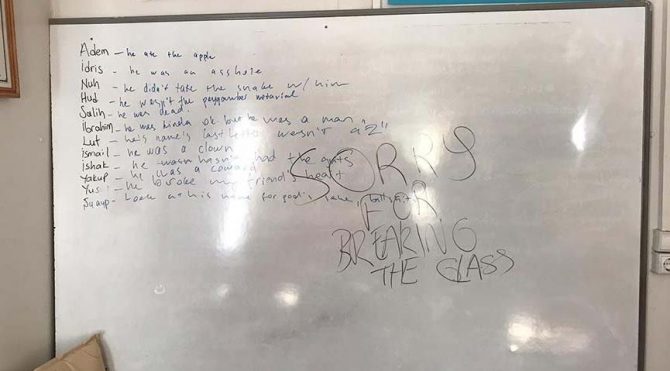 Adem - he ate the apple
idris - he was an asshole
Nuh - he didn't take the snake w/ him
Hud - he wasn't the peygamber material
Salih - he was dead.
ibrahim - he was kinda ok but he was a man
Lut - he's name's last letter wasn't a "Z"
ismail - he was a clown
ishak - he hasn't had the guts
Yakup - he was a coward
Yusuf - he broke my friend's heart
Şuayp - Look at his name for god's sake,
SORRY
FOR
BREAKING
THE GLASS